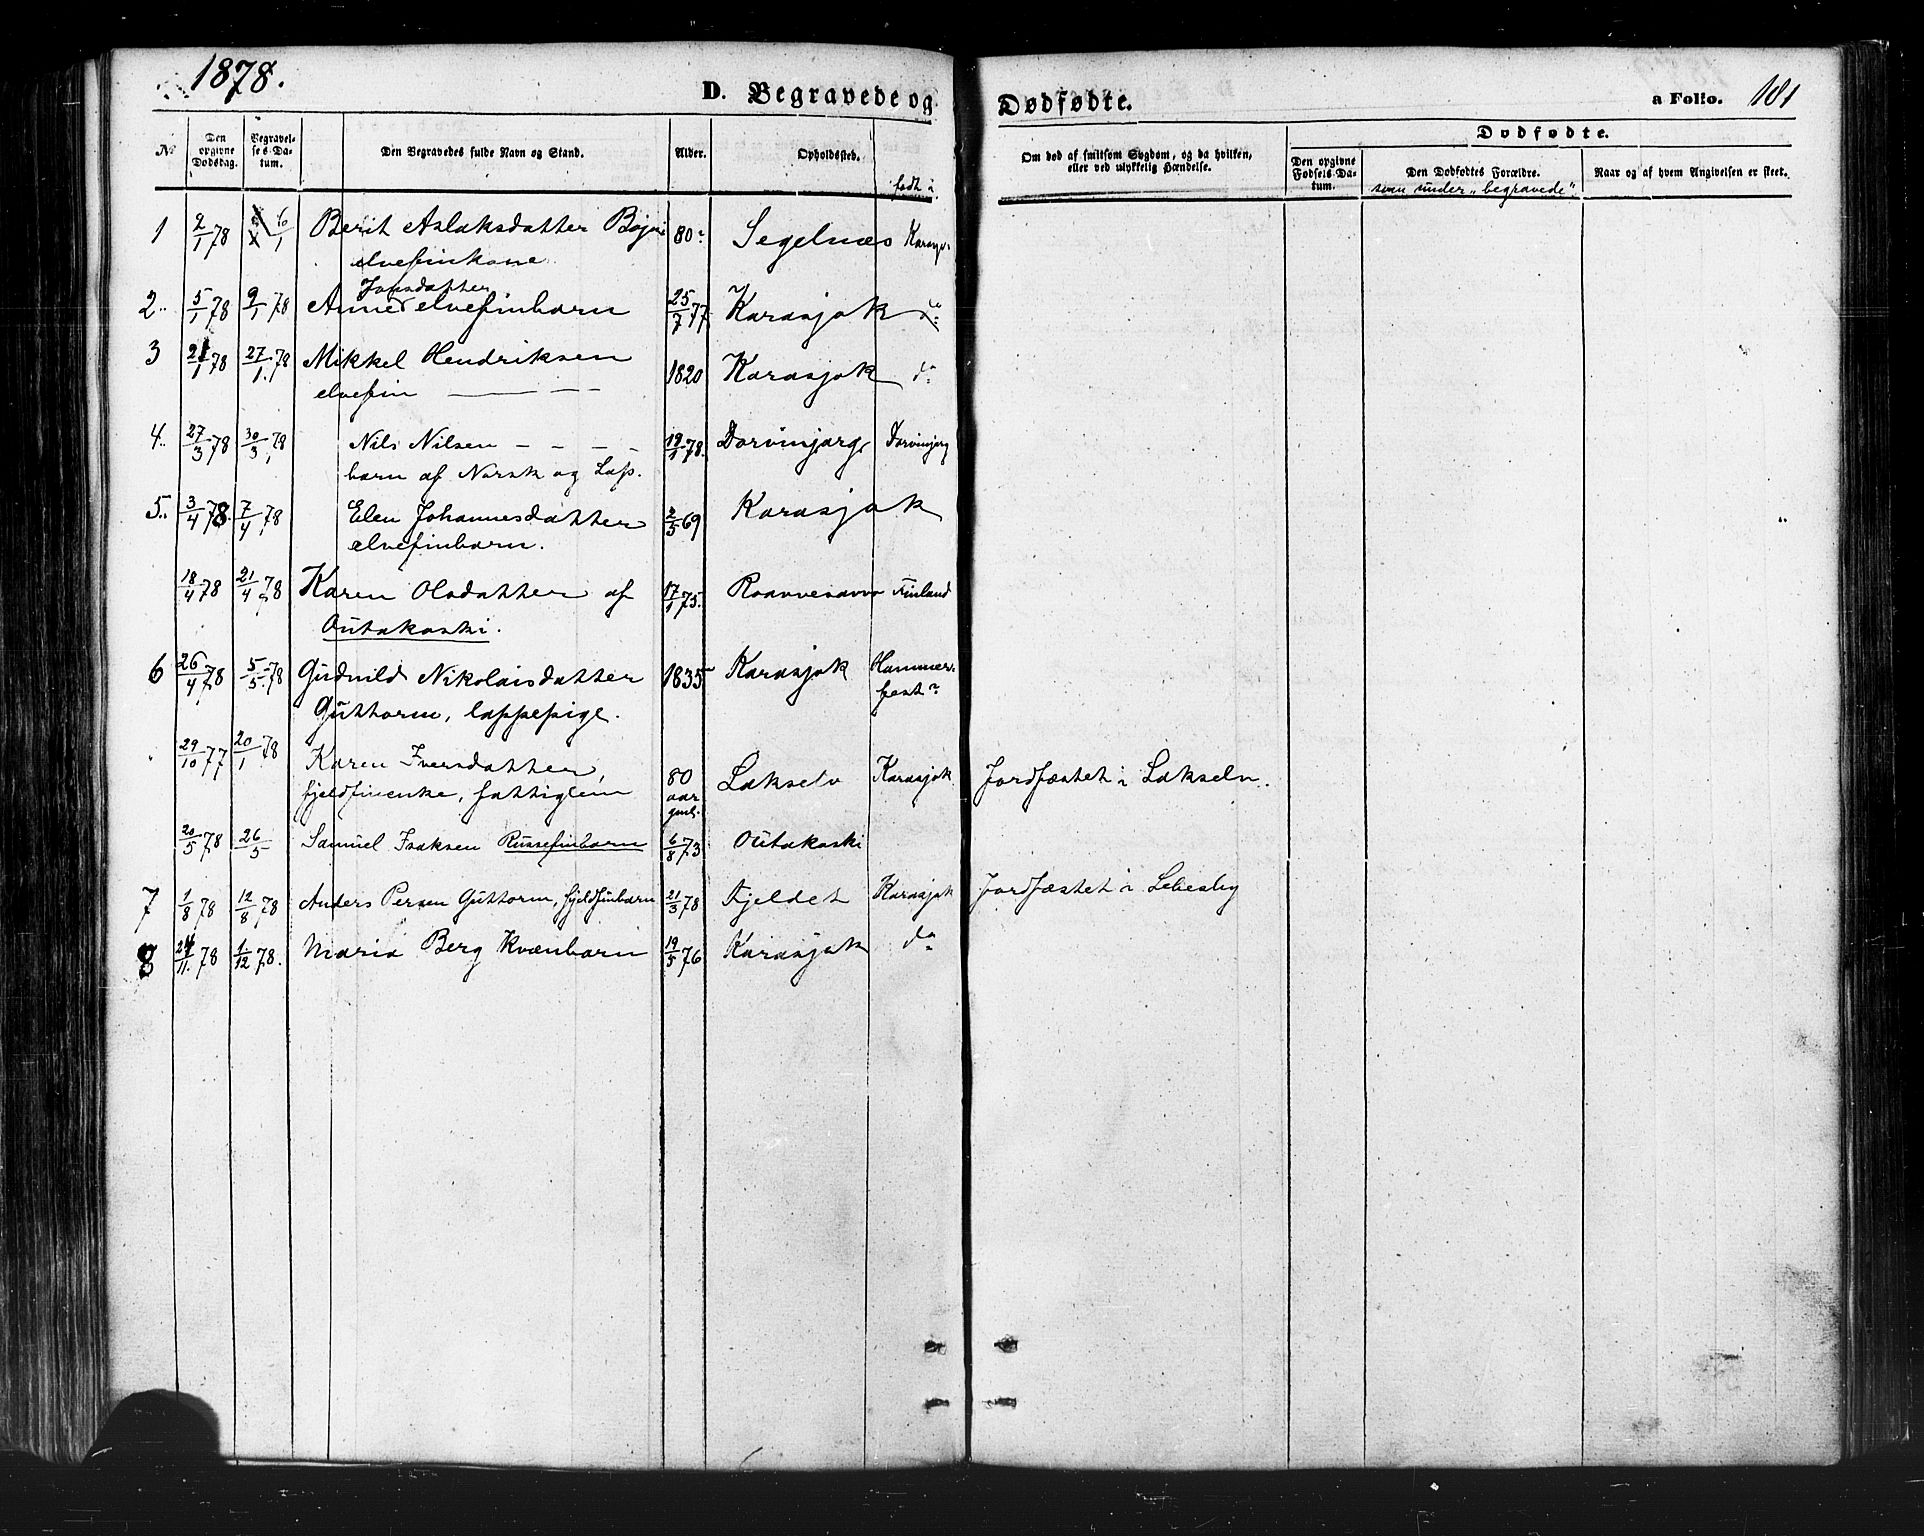 1878.
D. Begravede og Dødfødte. a Folio. 181
No
Den opgivne Dødsdag.
Begravelses-Datum.
Den Begravedes fulde Navn og Stand.
Alder.
Opholdssted.
født i
Om død af smitsom Sygdom, og da hvilken, eller ved ulykkelig Hændelse.
Dødfødte.
Den opgivne Fødsels-Datum.
Den Dødfødtes Forældre.
Naar og af hvem Angivelsen er skeet.
som under "begravede"
1 2/1 78 6/1 Berit Aslaksdatter 80 Segelnæs
elvefinkone
Jonsdatter
2 5/1 78 9/1 78 Anne elvefinbarn 25/7 77 Karasjok do
3 21/1 78 27/1 78 Mikkel Hendriksen 1820 Karasjok do
elvefin
4 27/3 78 30/3 78 Nils Nilsen 19/1 78 Dorvinjarg Dorvinjarg
barn af Norsk og Lap.
5 3/4 78 7/4 78 Elen Johannesdatter 2/5 69 Karasjok
elvefinbarn.
18/4 78 21/4 78 Karen Olsdatter af 17/1 75 Roavvesavvo Finland
Outakoski.
6 26/4 78 5/5 78 Gudnild Nikolaisdatter 1835 Karasjok Hammer-
Guttorm, lappepige. fest?
29/10 77 20/1 78 Karen Iversdatter, 80 Lakselv Karasjok Jordfæstet i Lakselv.
fjeldfinenke, fattiglem aar
gml.
20/5 78 26/5 Samuel Isaksen Russefinbarn 6/8 73 Outakoski
7 1/8 78 12/8 78 Anders Persen Guttorm, fjeldfinbarn 21/3 78 Fjeldet Karasjok Jordfæstet i Lebesby
8 24/11 78 1/12 78. Maria Berg Kvænbarn 19/5 76 Karasjok do